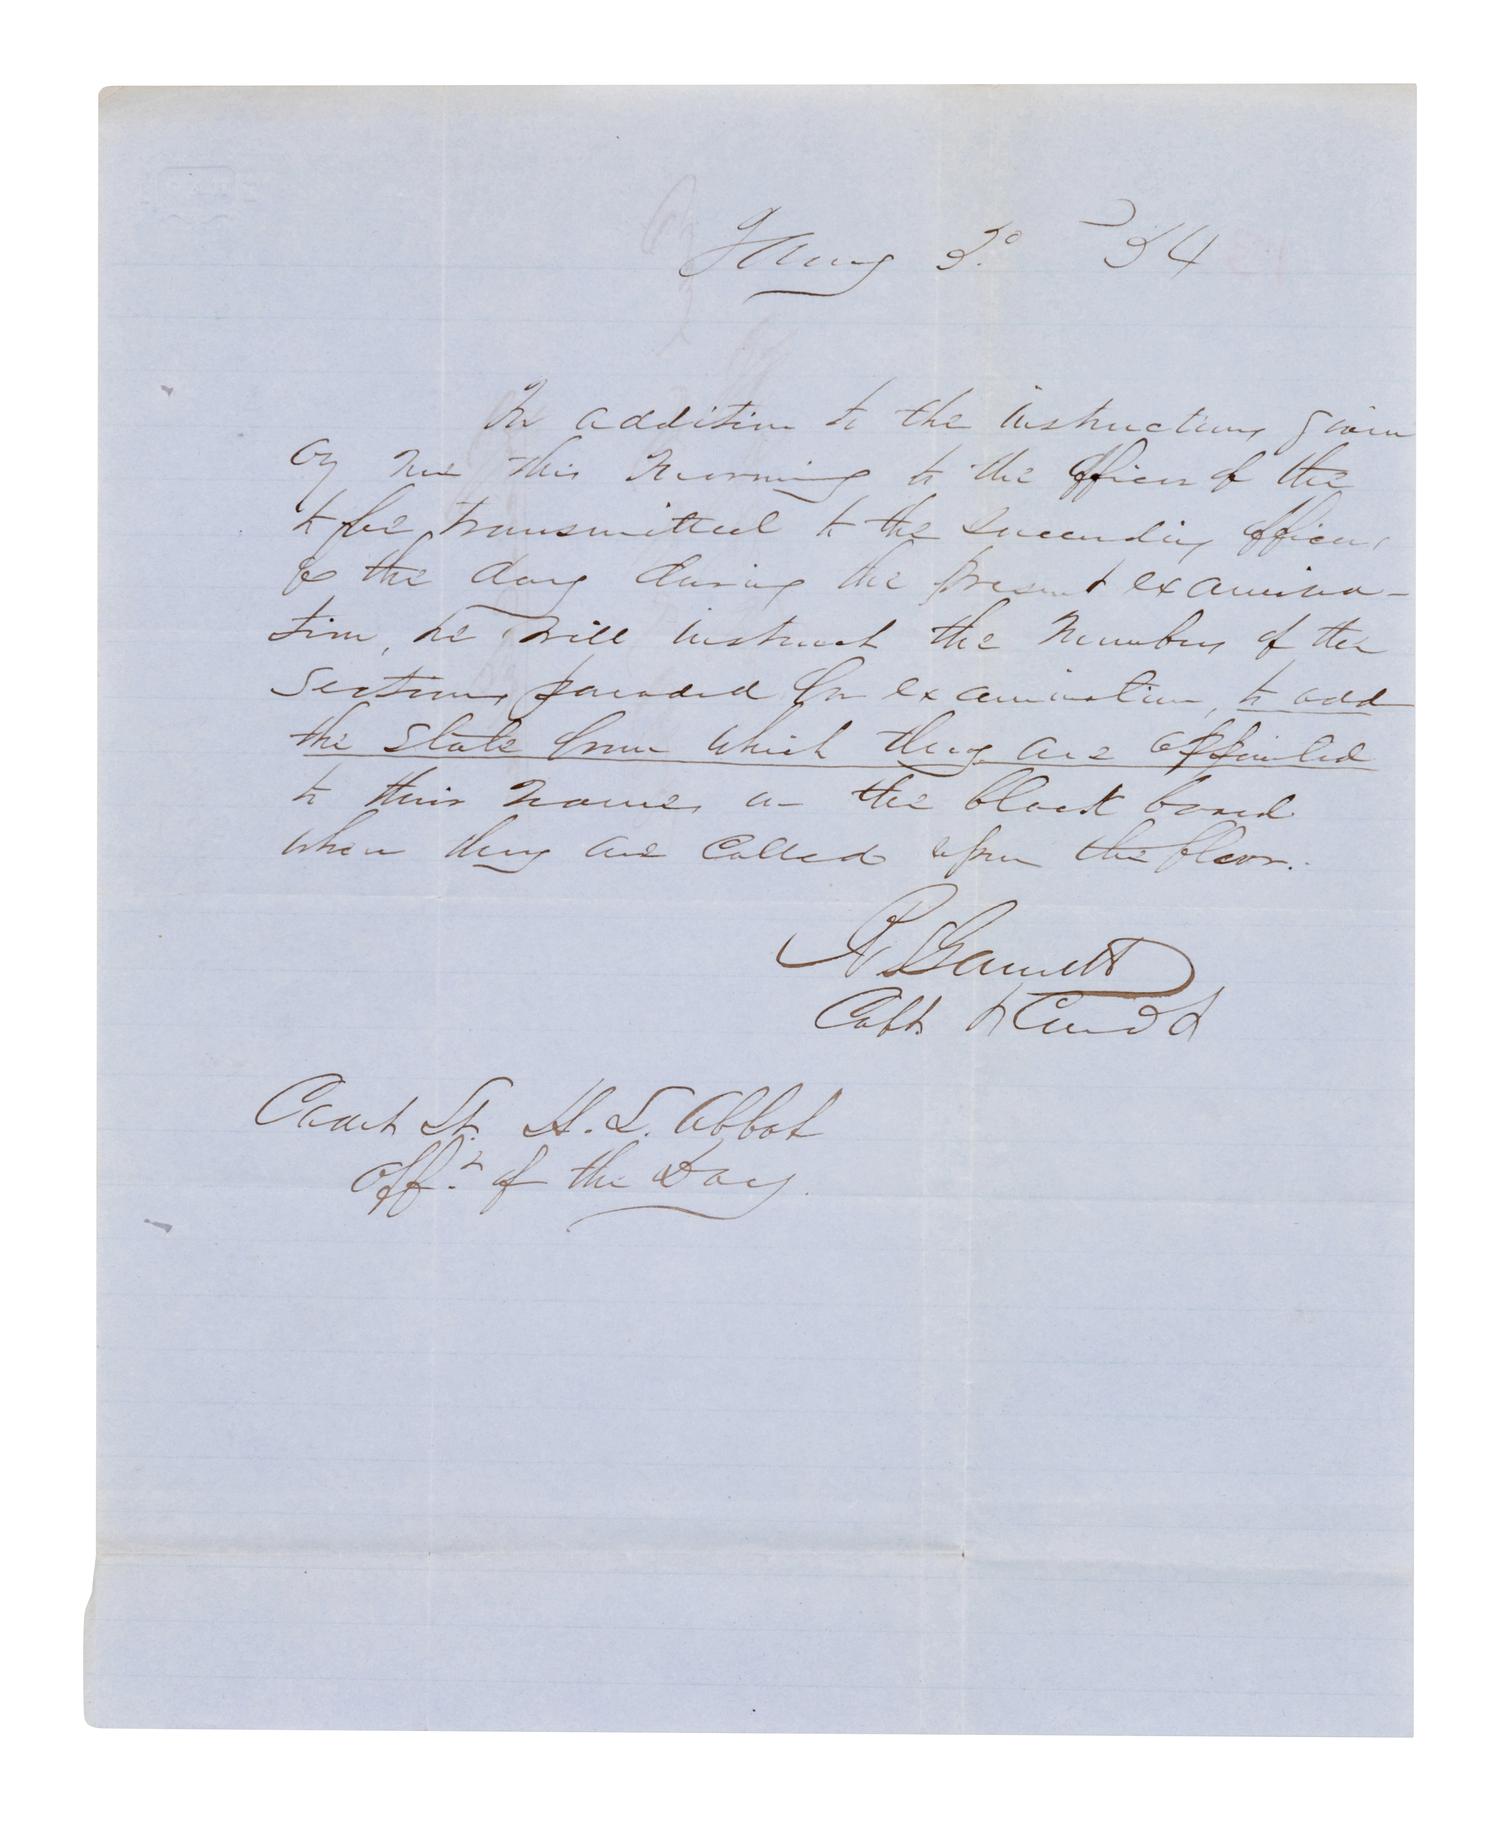 Jany 3.° 54
In addition to the instructions given
by me this morning to the officer of the
to be transmitted to the succeeding officers
of the day during the present examina-
tion, he will instruct the members of the
sections paraded for examination, to add
the state from which they are appointed
to their names on the black board
when they are called upon the floor.
R. S. Garnett
Capt &
Cadet Lt. H. L. Abbot
Offr. of the Day.